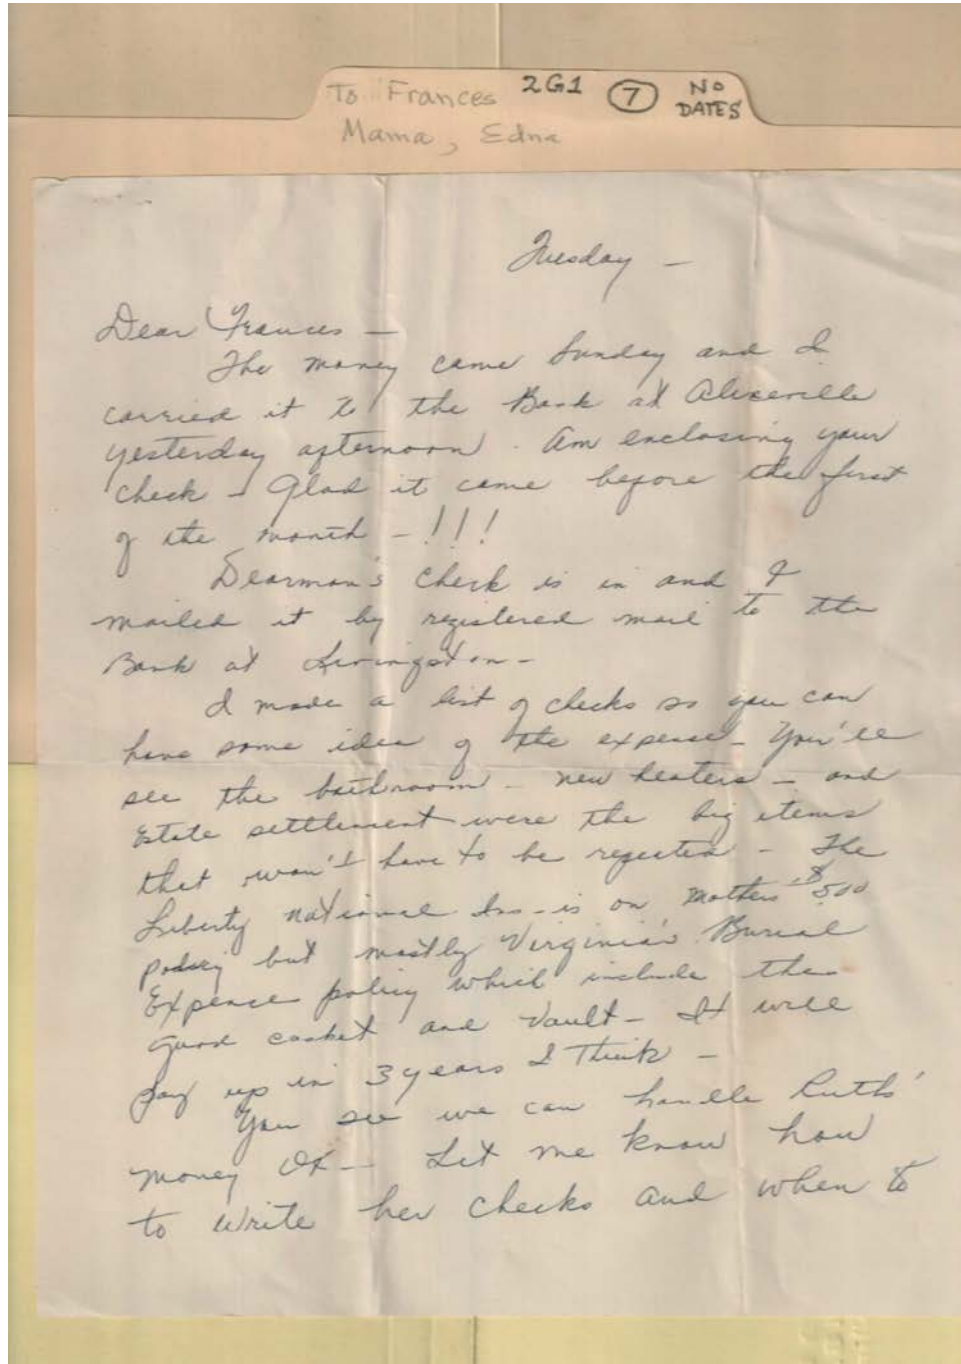 To Frances 2G1 7 NO
DATES
Mama, Edna
Tuesday —
Dear Frances —
The money came Sunday and I
carried it to the Bank at Aliceville
yesterday afternoon. Am enclosing your
check — Glad it came before the first
of the month — !!!
Dearman's check is in and I
mailed it by registered mail to the
Bank at Livingston —
I made a list of checks so you can
have some idea of the expense — You'll
see the bathroom — new heaters — and
Estate settlement were the big items
that won't have to be
— The
Liberty national Ins — is on Mothers $500
policy but mostly Virginia's Burial
Expence policy which include the
good casket and vault — It will
pay up in 3 years I think —
You see we can handle Ruth's
money OK — Let me know how
to write her checks and when to